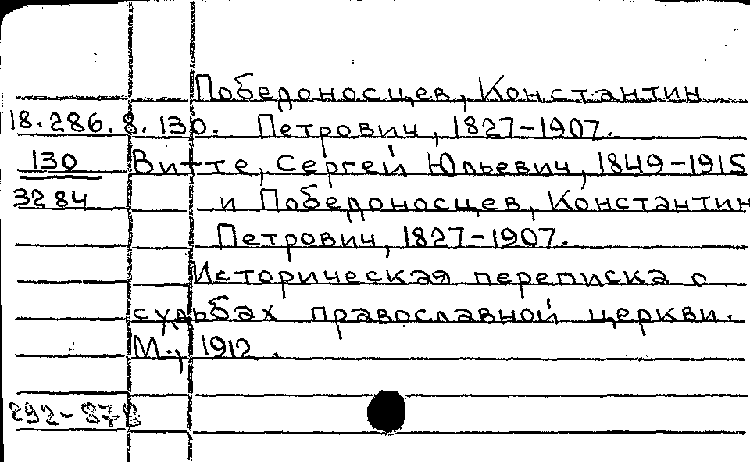 Победоносцев, Константин
18.286.8.130. Петрович, 1827-1907.
130 Витте, Сергей Юльевич, 1849-1915
3284 и Победоносцев, Константин
Петрович, 1827-1907.
Историческая переписка о
судьбах православной церкви.
М., 1912.
292-878